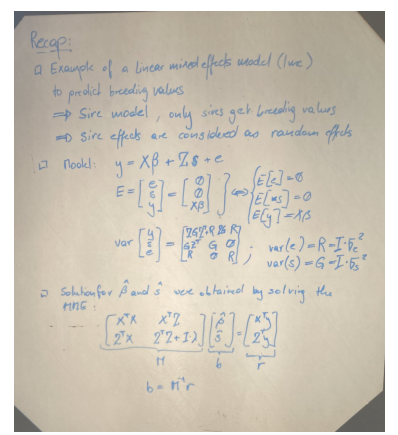 Recap:
□ Example of a linear mixed effects model (lme)
to predict breeding values
⇒ Sire model, only sires get breeding values
⇒ Sire effects are considered as random effects
□ Model: y = Xβ + Zs + e
E = [e s y] = [0 0 Xβ] } ⇔ { E[e] = 0
E[s] = 0
E[y] = Xβ
var [y s e] = [ZGZᵀ+R ZG R
GZᵀ G 0
R 0 R] ; var(e) = R = I·σe²
var(s) = G = I·σs²
□ Solution for β̂ and ŝ were obtained by solving the
MME:
[XᵀX XᵀZ
ZᵀX ZᵀZ+I·λ] [β̂ ŝ] = [Xᵀy Zᵀy]
M b r
b = M⁻¹r